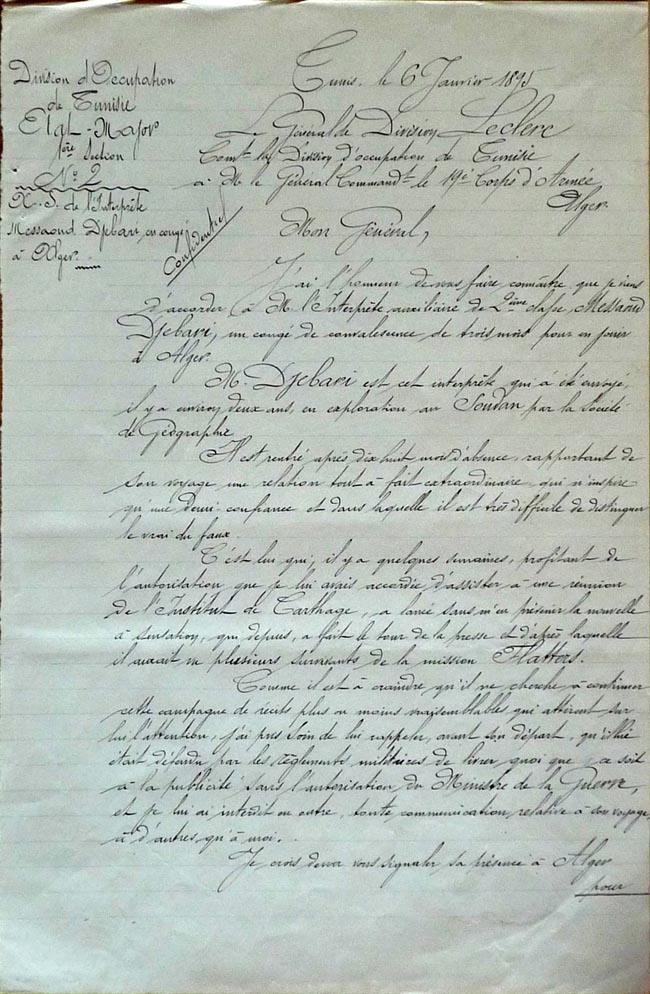 Division d'Occupation
de Tunisie
Etat-Major
1ère Section
N° 2
A. S. de l'Interprète
Messaoud Djebari, en congé
à Alger.
Confidentiel
Tunis, le 6 Janvier 1895
Le Général de Division Leclerc
Comt la Division d'occupation de Tunisie
à M. le Général Commandt le 19e Corps d'Armée
Alger.
Mon Général,
J'ai l'honneur de vous faire connaître que je viens
d'accorder à M. l'Interprète auxiliaire de 2ème classe Messaoud
Djebari, un congé de convalescence de trois mois pour en jouir
à Alger.
M. Djebari est cet interprète qui a été envoyé,
il y a environ deux ans, en exploration au Soudan par la Société
de Géographie.
Il est rentré après dix huit mois d'absence, rapportant de
son voyage une relation tout à fait extraordinaire qui n'inspire
qu'une demi confiance et dans laquelle il est très difficile de distinguer
le vrai du faux.
C'est lui qui, il y a quelques semaines, profitant de
l'autorisation que je lui avais accordée d'assister à une réunion
de l'Institut de Carthage, a lancé sans m'en prévenir la nouvelle
à sensation, qui depuis, a fait le tour de la presse et d'après laquelle
il aurait vu plusieurs survivants de la mission Flatters.
Comme il est à craindre qu'il ne cherche à continuer
cette campagne de récits plus ou moins vraisemblables qui attirent sur
lui l'attention, j'ai pris soin de lui rappeler, avant son départ, qu'il lui
était défendu par les règlements militaires de livrer quoi que ce soit
à la publicité sans l'autorisation du Ministre de la Guerre,
et je lui ai interdit en outre, toute communication relative à son voyage,
à d'autres qu'à moi.
Je crois devoir vous signaler sa présence à Alger
pour